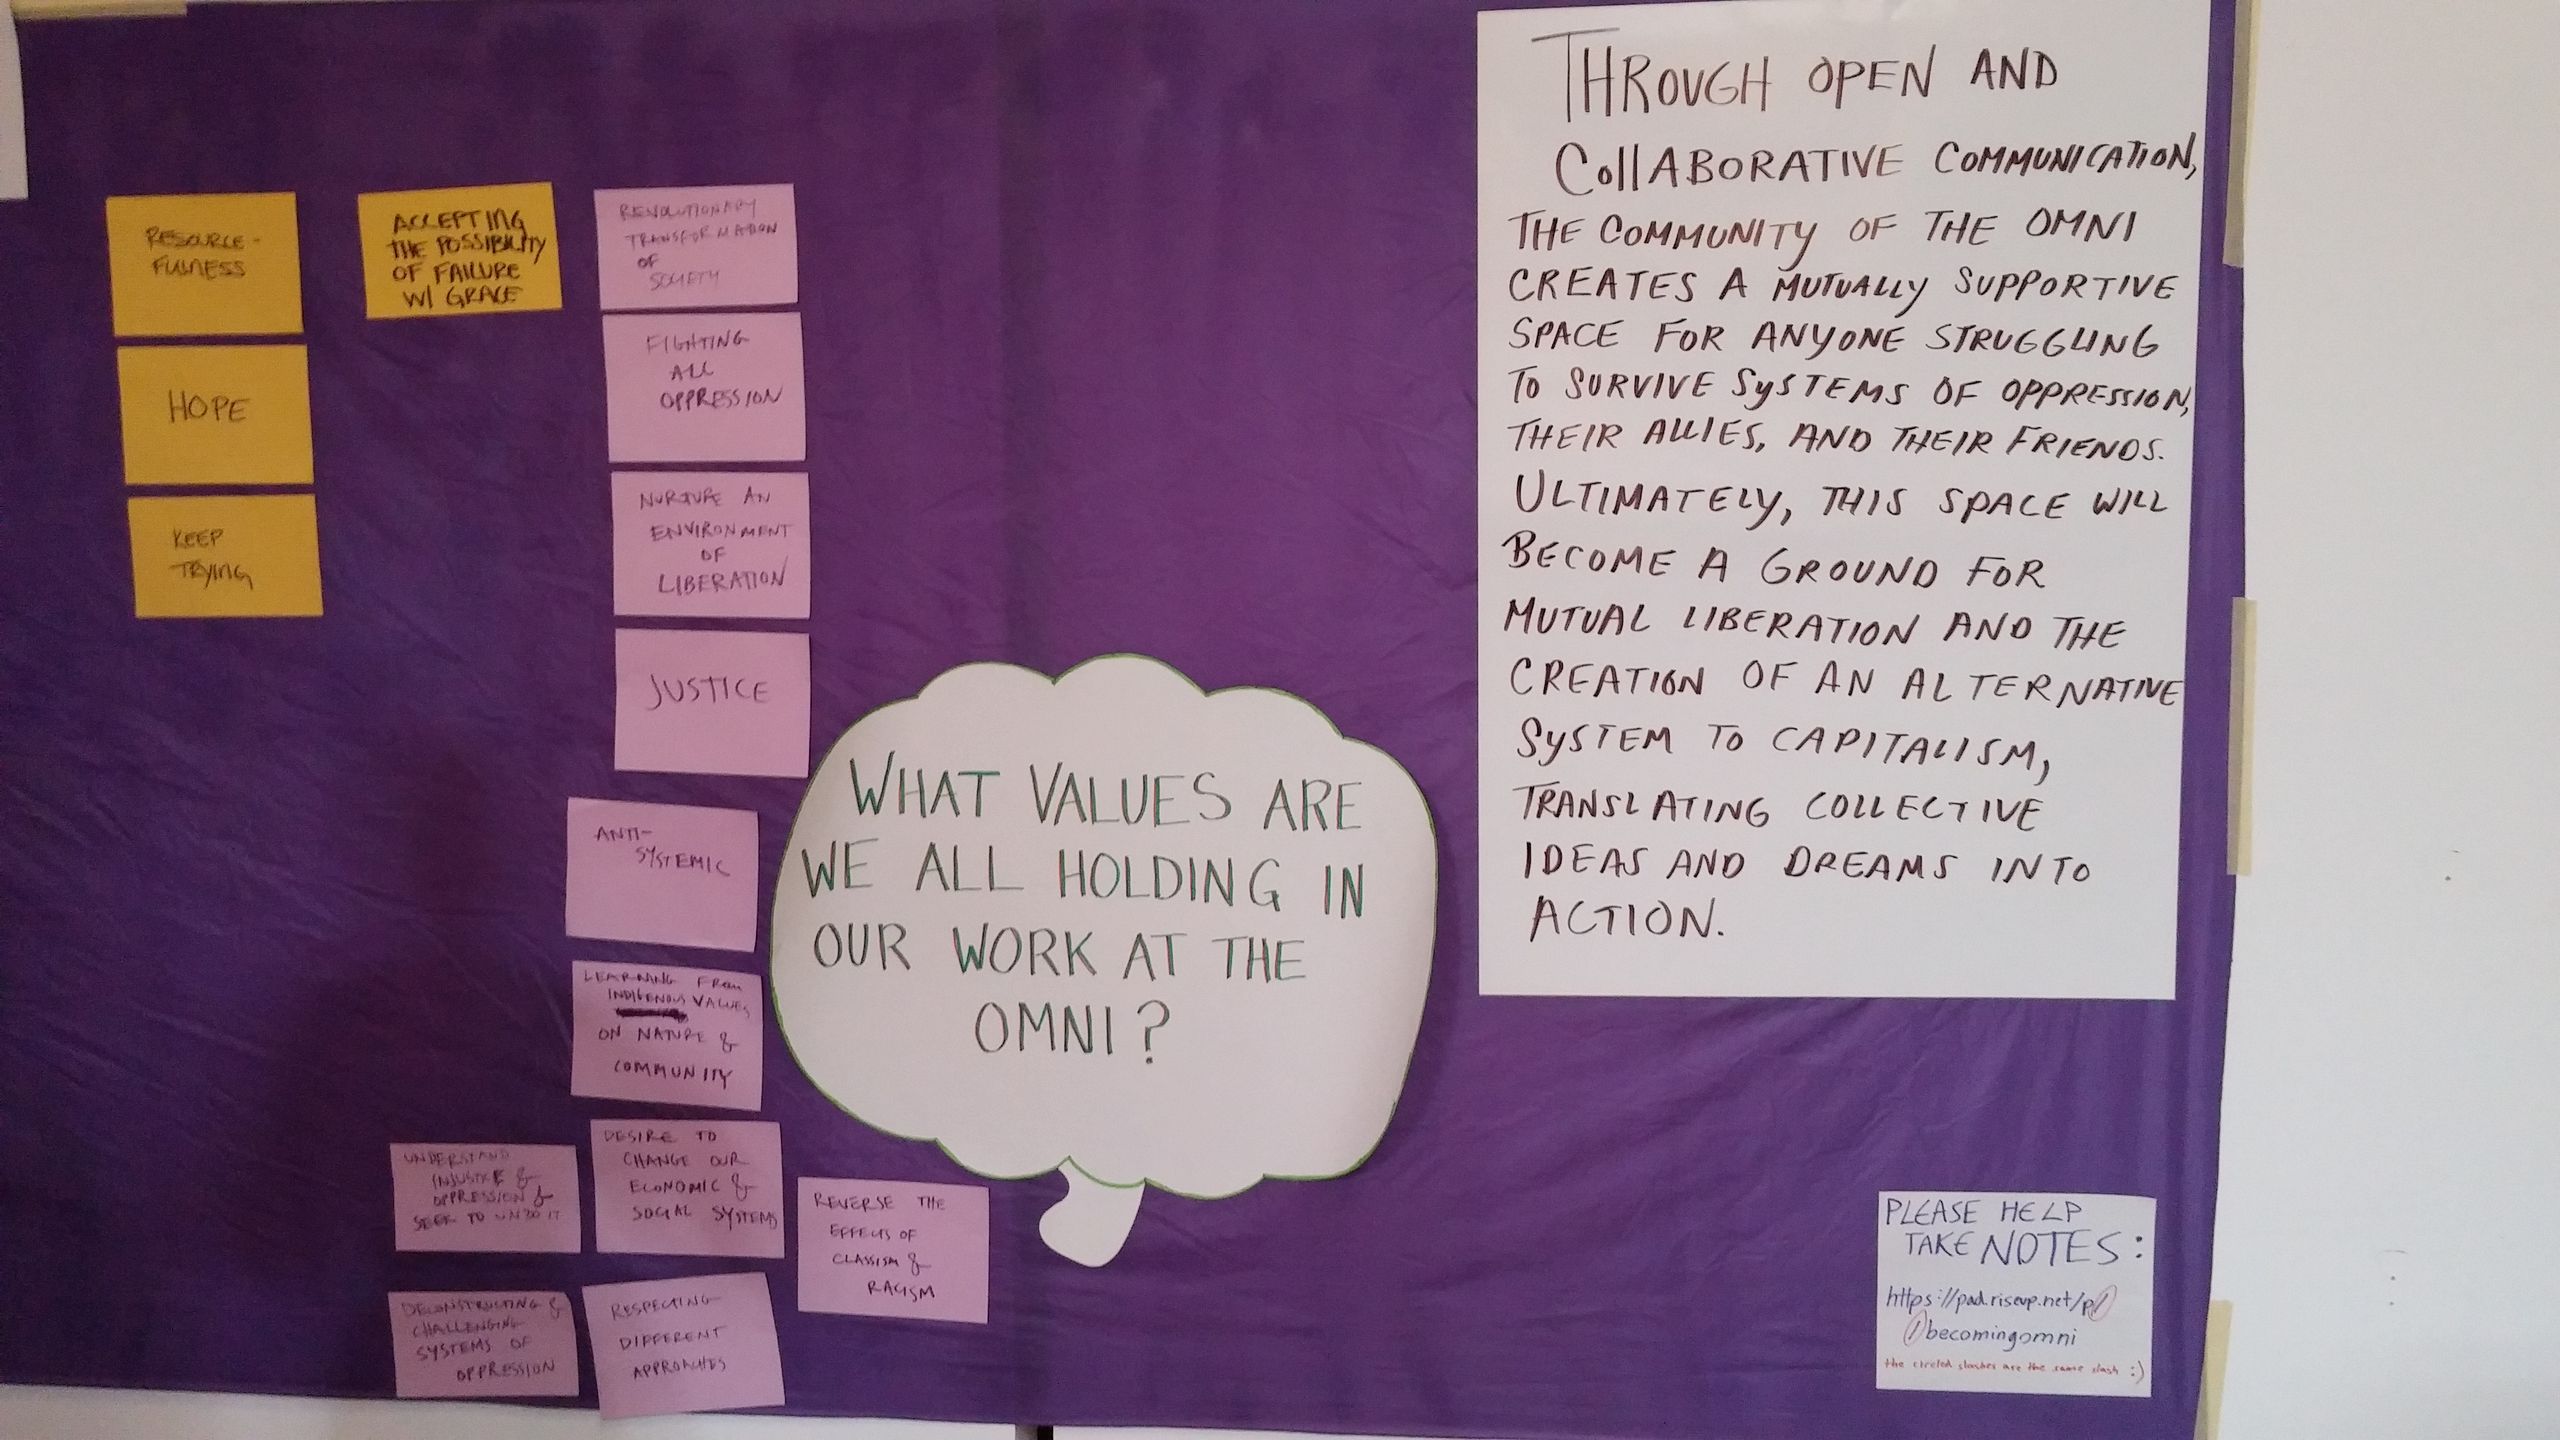 RESOURCE-
FULNESS
HOPE
KEEP
TRYING
ACCEPTING
THE POSSIBILITY
OF FAILURE
W/ GRACE
REVOLUTIONARY
TRANSFORMATION
OF
SOCIETY
FIGHTING
ALL
OPPRESSION
NURTURE AN
ENVIRONMENT
OF
LIBERATION
JUSTICE
ANTI-
SYSTEMIC
LEARNING FROM
INDIGENOUS VALUES
ON NATURE &
COMMUNITY
UNDERSTAND
INJUSTICE &
OPPRESSION &
SEEK TO UNDO IT
DESIRE TO
CHANGE OUR
ECONOMIC &
SOCIAL SYSTEMS
REVERSE THE
EFFECTS OF
CLASSISM &
RACISM
DECONSTRUCTING &
CHALLENGING
SYSTEMS OF
OPPRESSION
RESPECTING
DIFFERENT
APPROACHES
WHAT VALUES ARE
WE ALL HOLDING IN
OUR WORK AT THE
OMNI?
THROUGH OPEN AND
COllABORATIVE COMMUNICATION,
THE COMMUNITY OF THE OMNI
CREATES A MUTUALLY SUPPORTIVE
SPACE FOR ANYONE STRUGGLING
TO SURVIVE SYSTEMS OF OPPRESSION,
THEIR ALLIES, AND THEIR FRIENDS.
ULTIMATELY, THIS SPACE WILL
BECOME A GROUND FOR
MUTUAL LIBERATION AND THE
CREATION OF AN ALTERNATIVE
SYSTEM TO CAPITALISM,
TRANSLATING COLLECTIVE
IDEAS AND DREAMS INTO
ACTION.
PLEASE HELP
TAKE NOTES:
https://pad.riseup.net/p/
/becomingomni
the circled slashes are the same slash :)